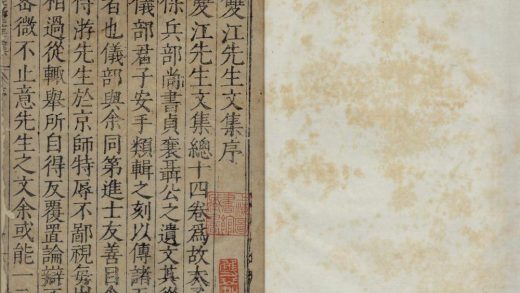 雙江先生文集序
雙江先生文集總十四卷爲故太子
保兵部尚書貞襄聶公之遺文其從
儀部君子安手類輯之刻以傳諸
者也儀部與余同第進士友善目
游先生於京師特辱不鄙視每
相過從輒舉所自得反覆置論辯不
審微不止意先生之文余或能一